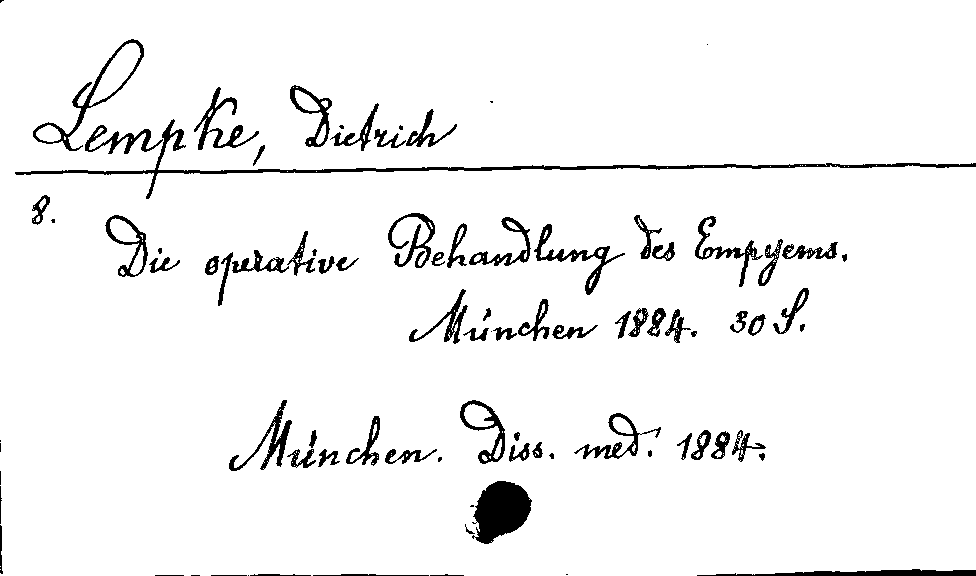 Lempke, Dietrich
8.
Die operative Behandlung des Empyems.
München 1884. 30 S.
München. Diss. med. 1884.